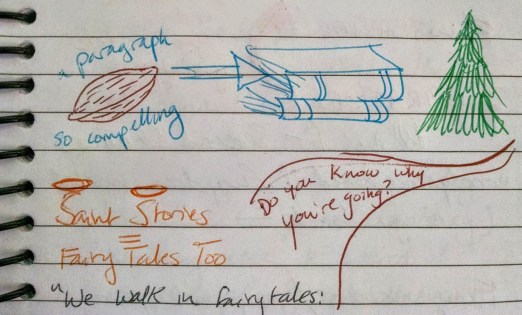 a paragraph
so compelling
Do you know why
you're going?
Saint Stories
Fairy Tales Too
"We walk in fairytales: